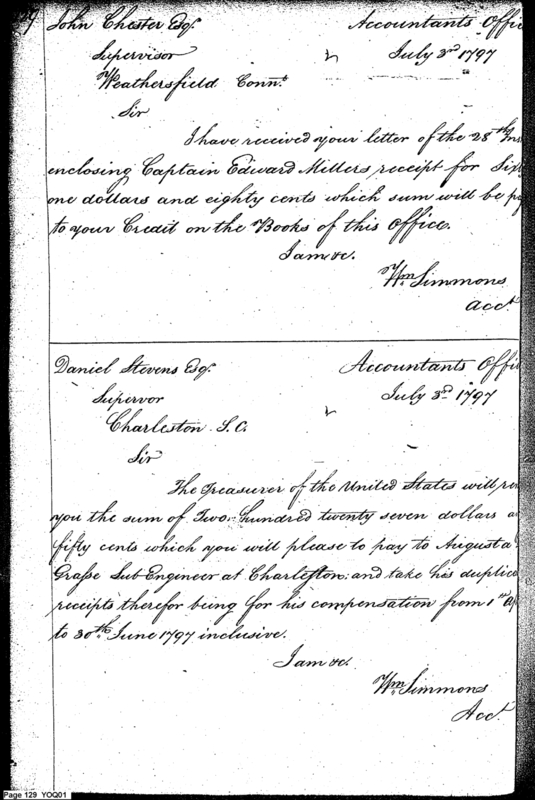 John Chester Esqr. Accountants Offi
Supervisor July 3rd 1797
Weathersfield Connt.
Sir
I have received your letter of the 28th Ins
enclosing Captain Edward Millers receipt for Sixt
one dollars and eighty cents which sum will be pa
to your Credit on the Books of this Office.
I am &c.
Wm. Simmons
Acct.
Daniel Stevens Esqr. Accountants Offi
Supervor July 3rd. 1797
Charleston S.C.
Sir
The Treasurer of the United States will re
you the sum of Two hundred twenty seven dollars a
fifty cents which you will please to pay to Augusta
Grasse Sub Engineer at Charleston; and take his duplic
receipts therefor being for his compensation from 1st Ap
to 30th June 1797 inclusive.
I am &c.
Wm. Simmons
Acct.
Page 129 YOQ01